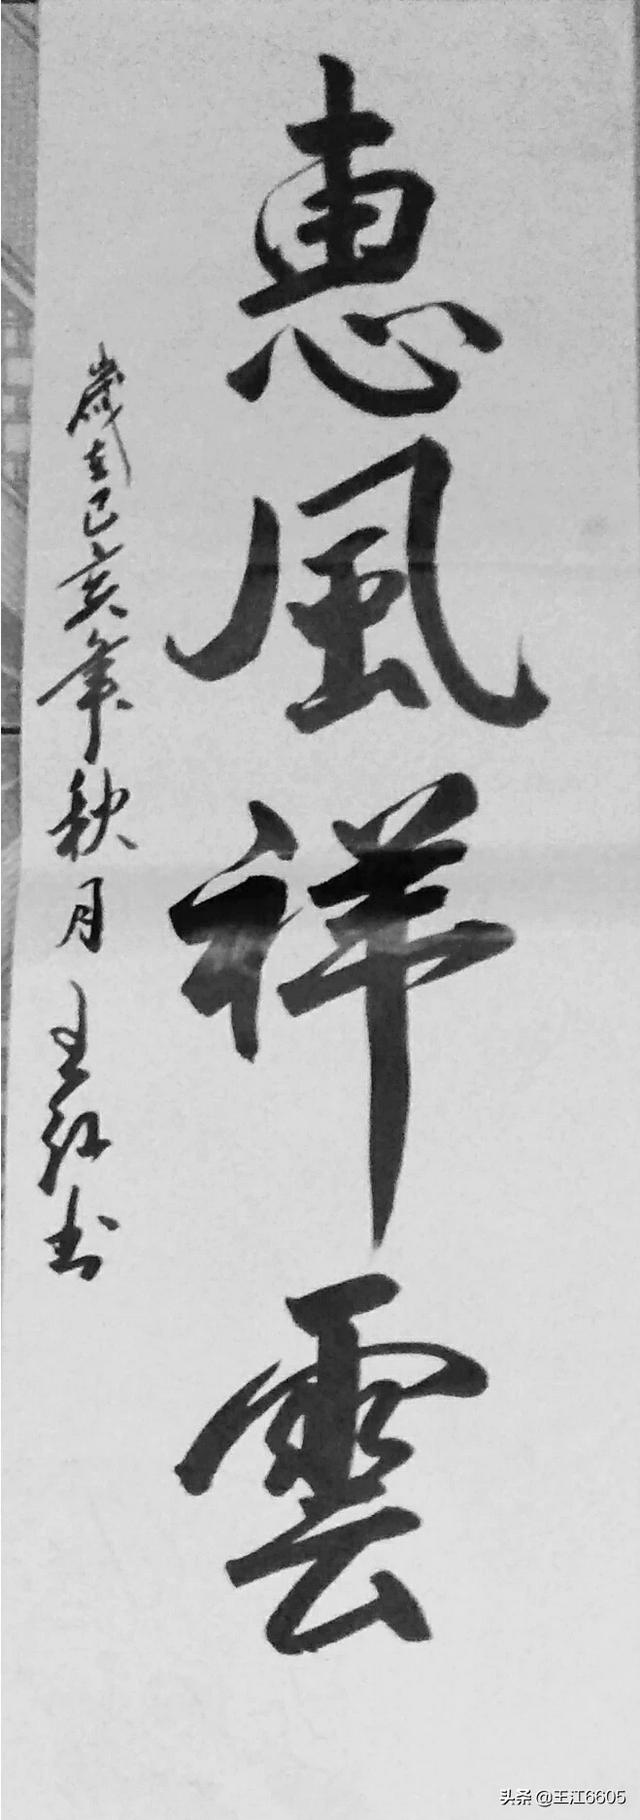 惠風祥雲
歲在己亥年秋月王江书
头条 @王江6605